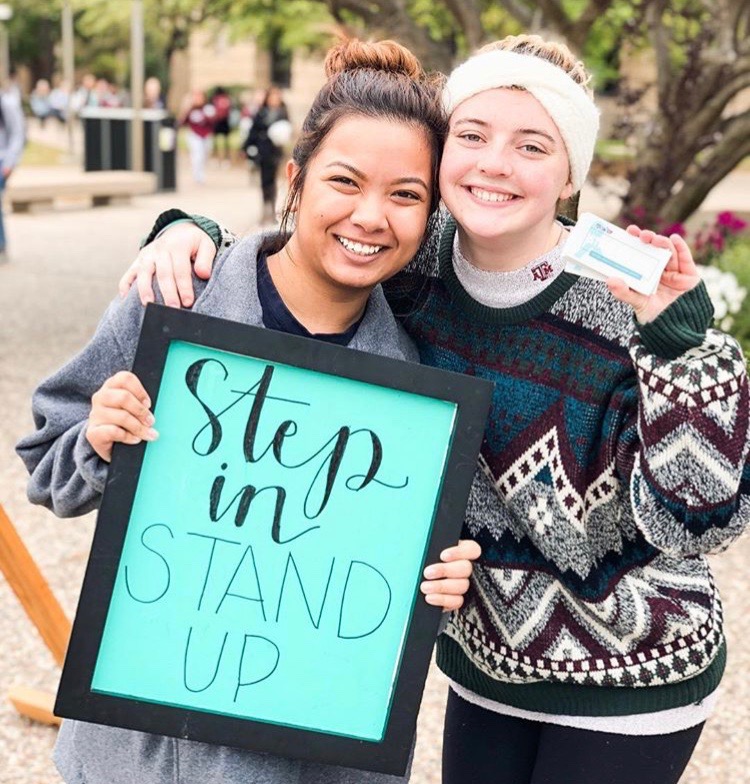 Step
in
STAND
UP
ATM